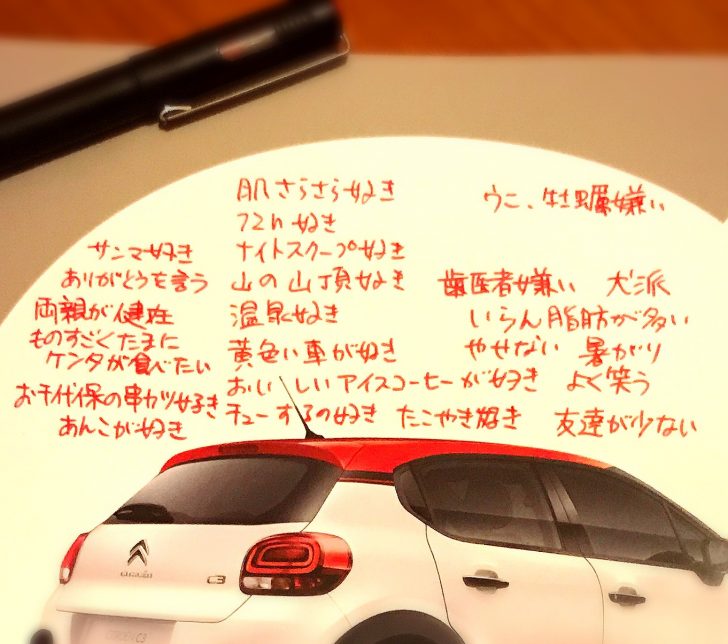 肌さらさら好き
72h 好き
ナイトスクープ好き
山の山頂好き
温泉好き
黄色い車が好き
おいしいアイスコーヒーが好き
チューするの好き
サンマ好き
ありがとうを言う
両親が健在
ものすごくたまに
ケンタが食べたい
お千代保の串カツ好き
あんこが好き
ウニ、牡蠣嫌い
歯医者嫌い
犬派
いらん脂肪が多い
やせない
暑がり
よく笑う
たこやき好き
友達が少ない
CITROËN
C3
CITROËN C3